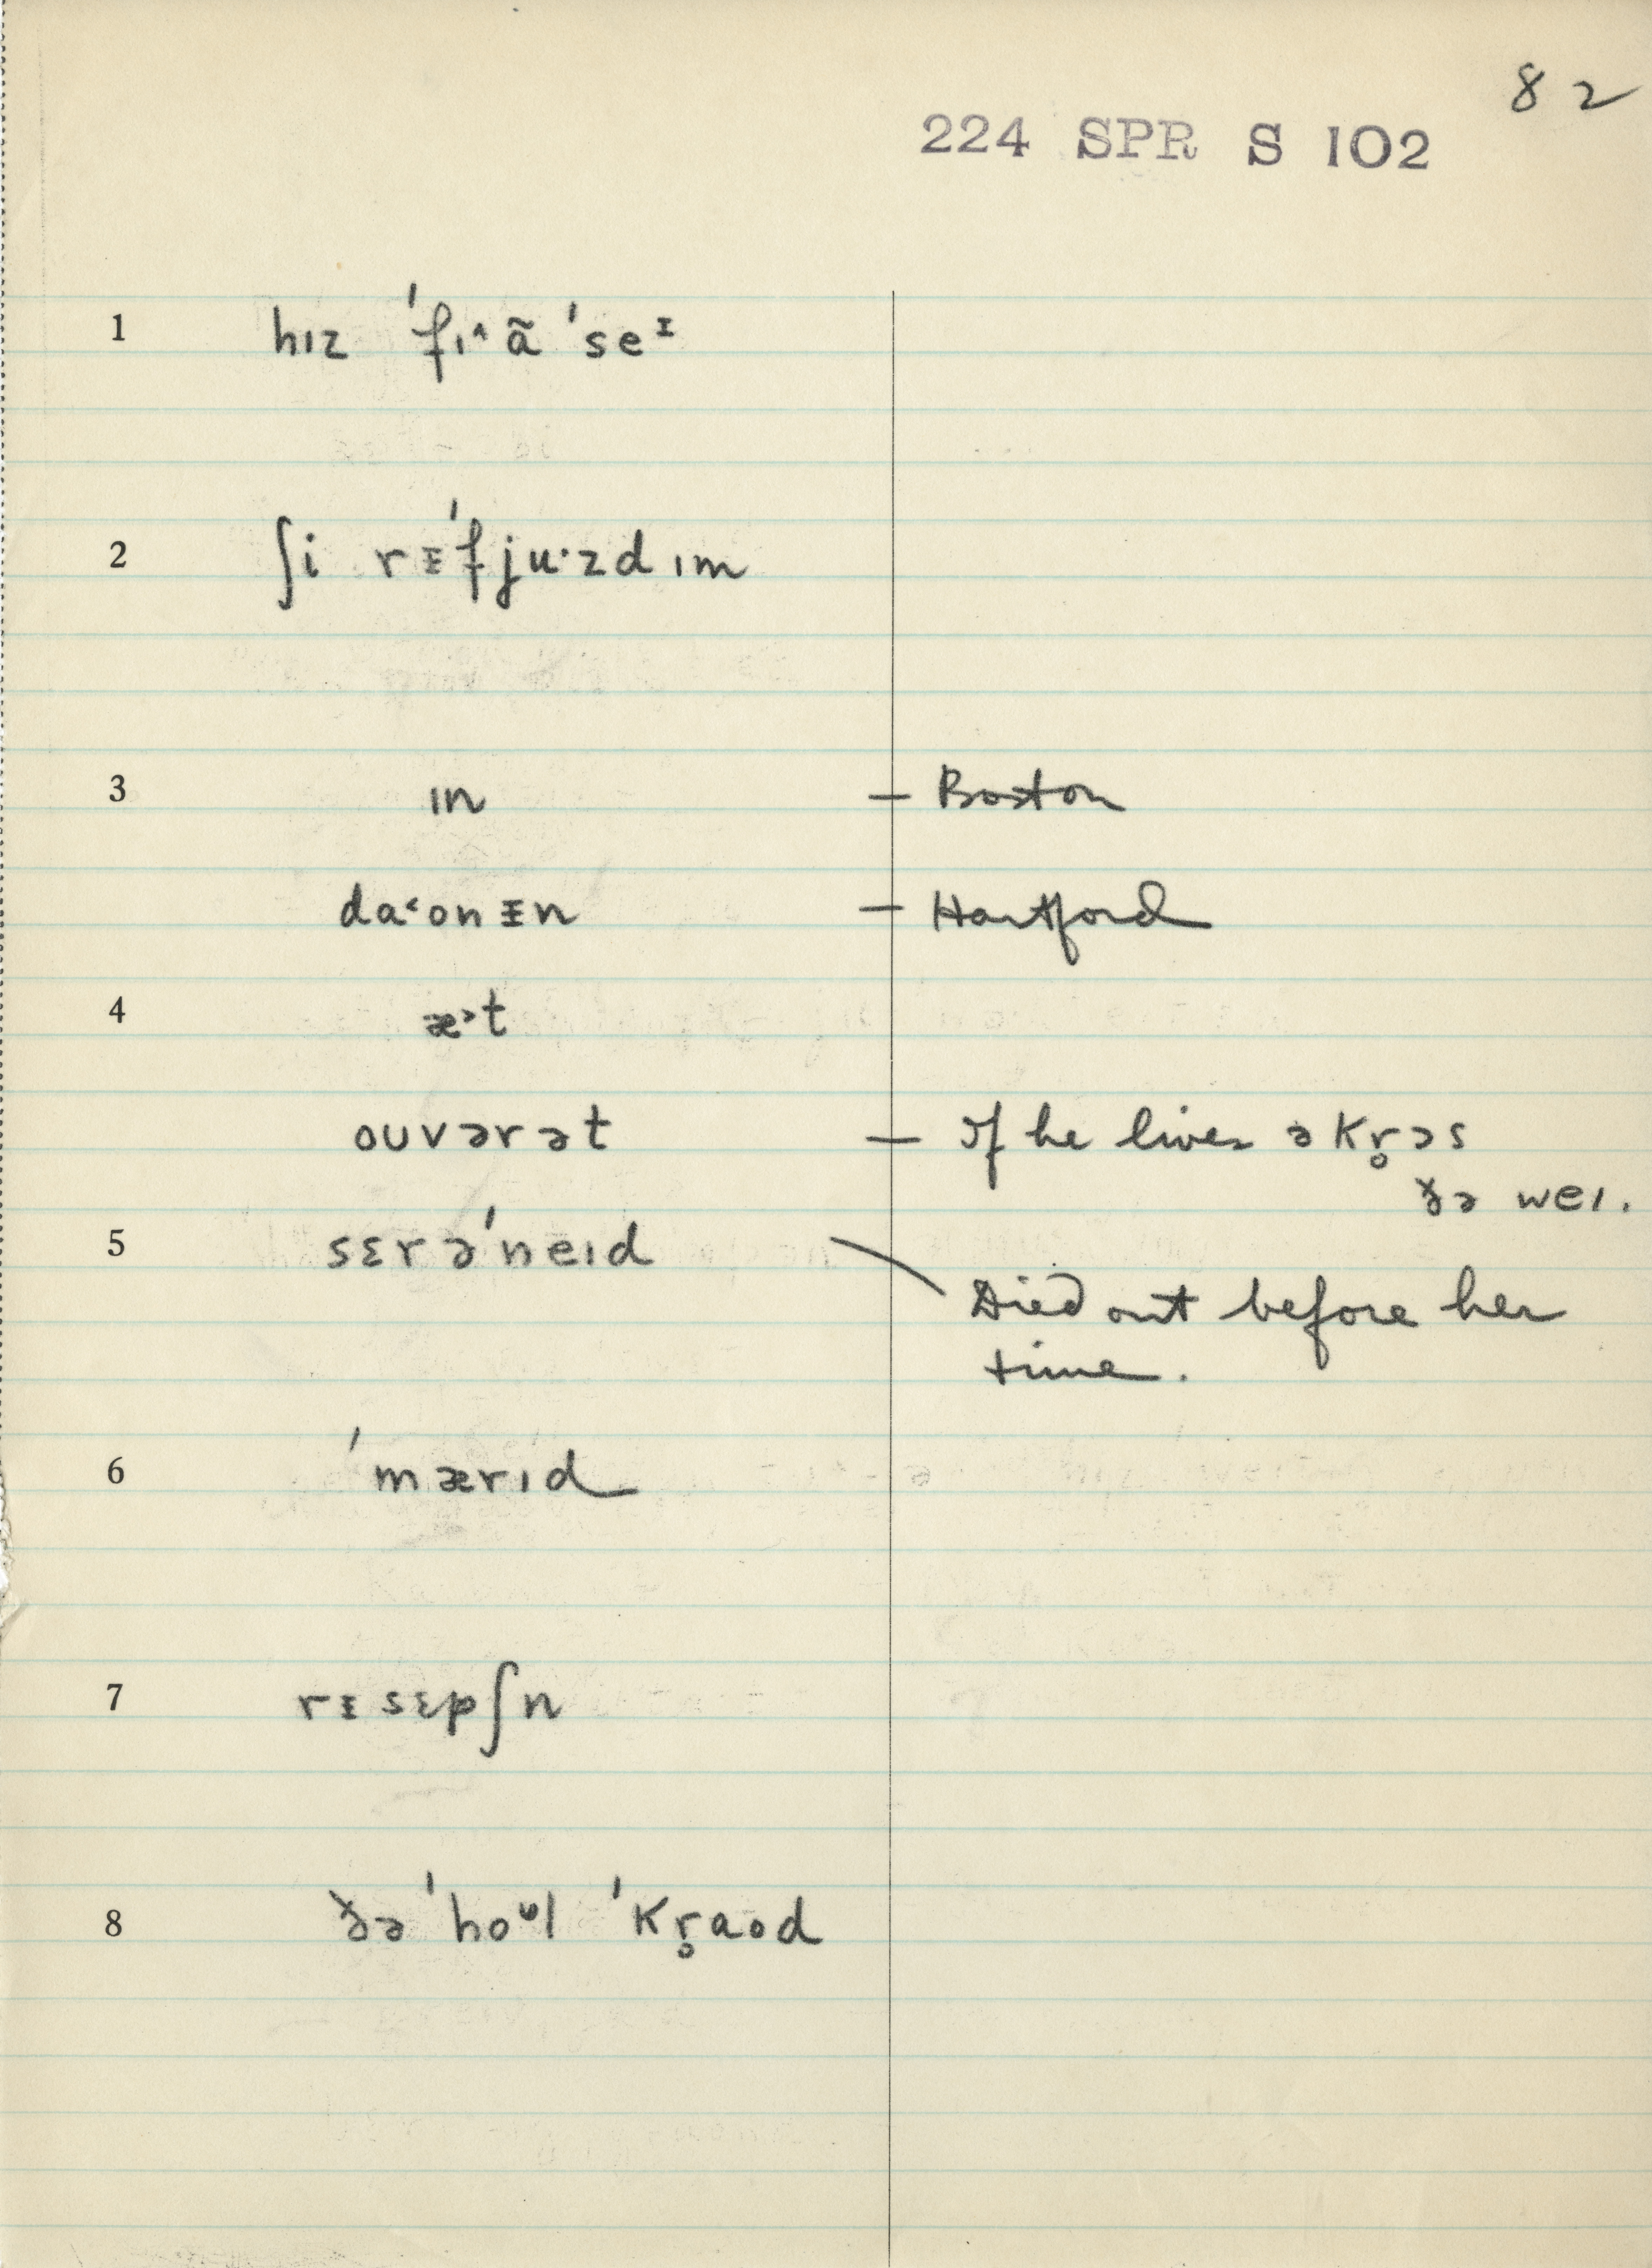 82
224 SPR S 102
1 hɪz ˈfɪ˄ ã ˈseᵻ
2 ʃi rᵻˈfjuˑzd ɪm
3 ɪn — Boston
da˂ɒnᵻn — Hartford
4 æ˃t
oʊvərət — If he lives əkr̥ɔs
ðə weɪ.
5 sɛrəˈneɪd
Died out before her
time.
6 ˈmærɪd
7 rᵻsɛpʃn
8 ðə ˈhoᶷl ˈkr̥aʊd